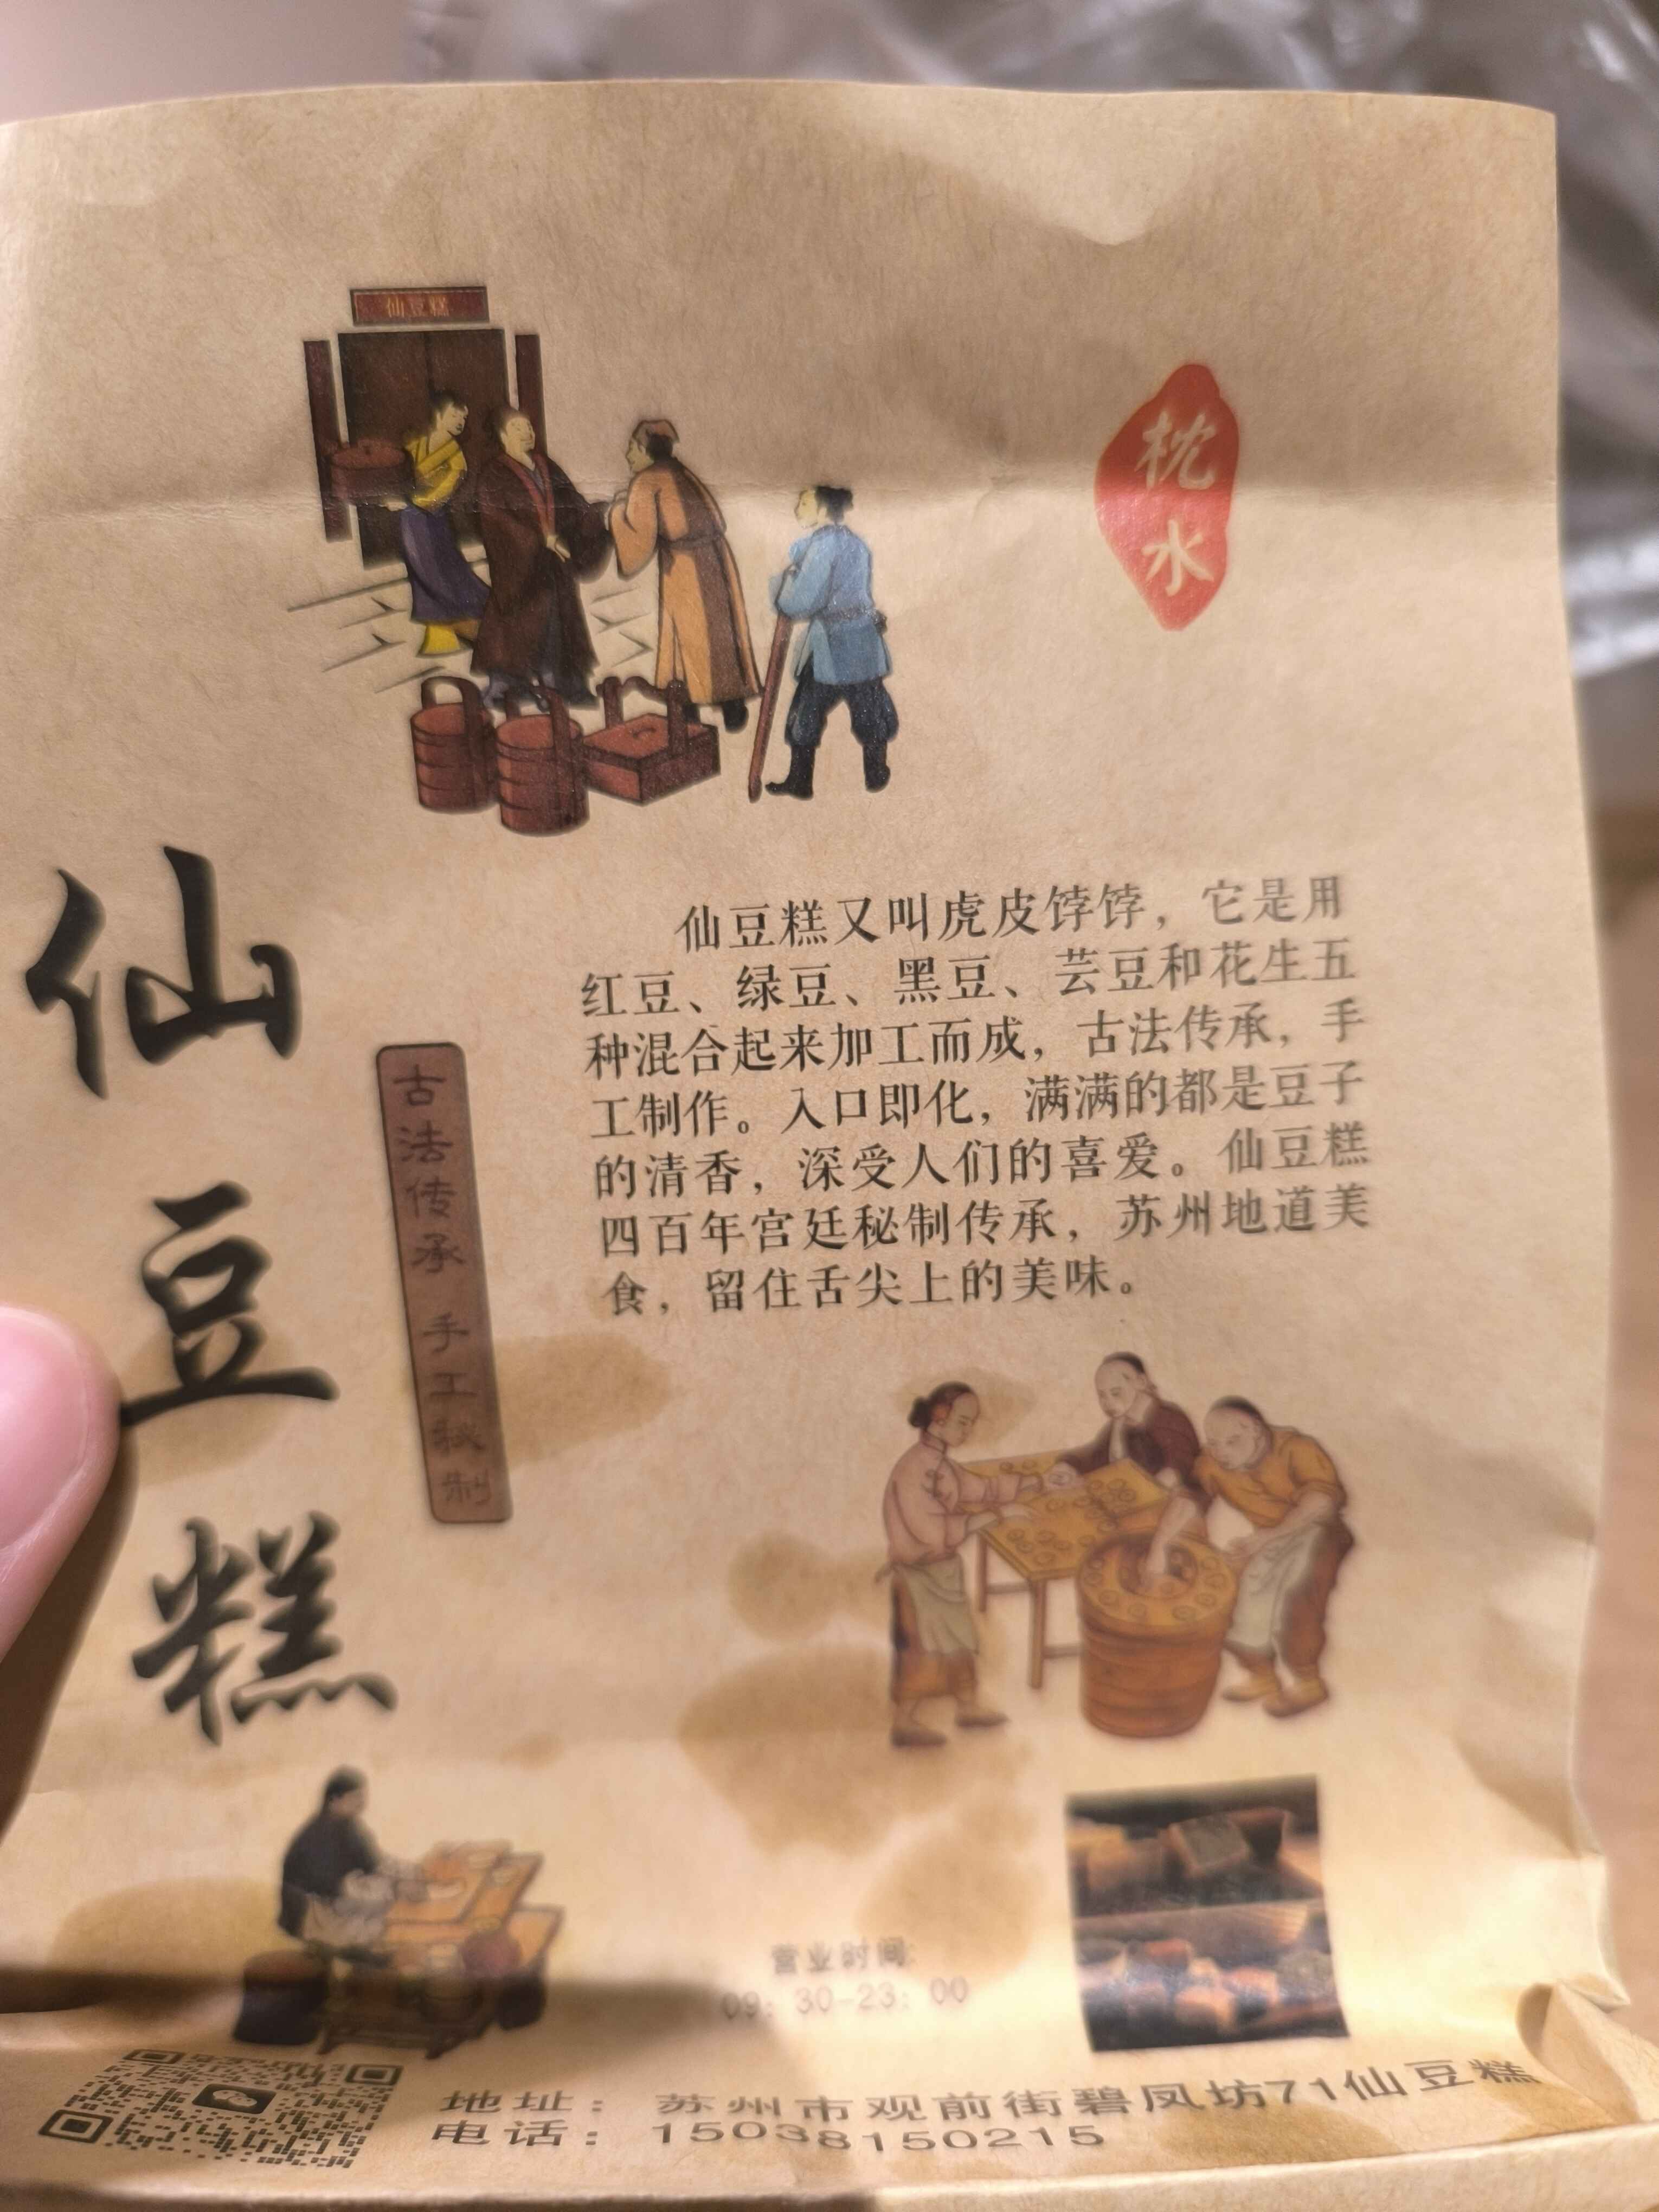 仙豆糕
枕
水
仙豆糕又叫虎皮饽饽，它是用
红豆、绿豆、黑豆、芸豆和花生五
种混合起来加工而成，古法传承，手
工制作。入口即化，满满的都是豆子
的清香，深受人们的喜爱。仙豆糕
四百年宫廷秘制传承，苏州地道美
食，留住舌尖上的美味。
仙豆糕
古法传承 手工秘制
营业时间:
09: 30-23: 00
地址：苏州市观前街碧凤坊71仙豆糕
电话：15038150215